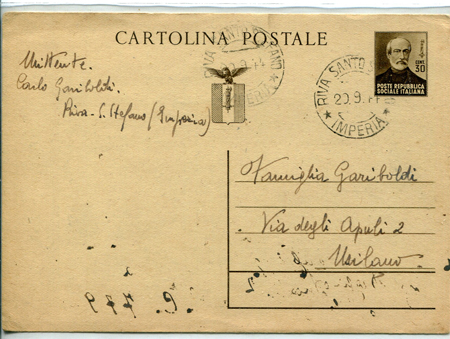 CARTOLINA POSTALE
Mittente.
Carlo Gariboldi.
Riva - S. Stefano (Imperia)
RIVA SANTO STEFANO
20.9.44
IMPERIA
CENT. 30
POSTE REPUBBLICA
SOCIALE ITALIANA
RIVA SANTO S
20.9.44
★ IMPERIA ★
Famiglia Gariboldi
Via degli Apuli 2
Milano